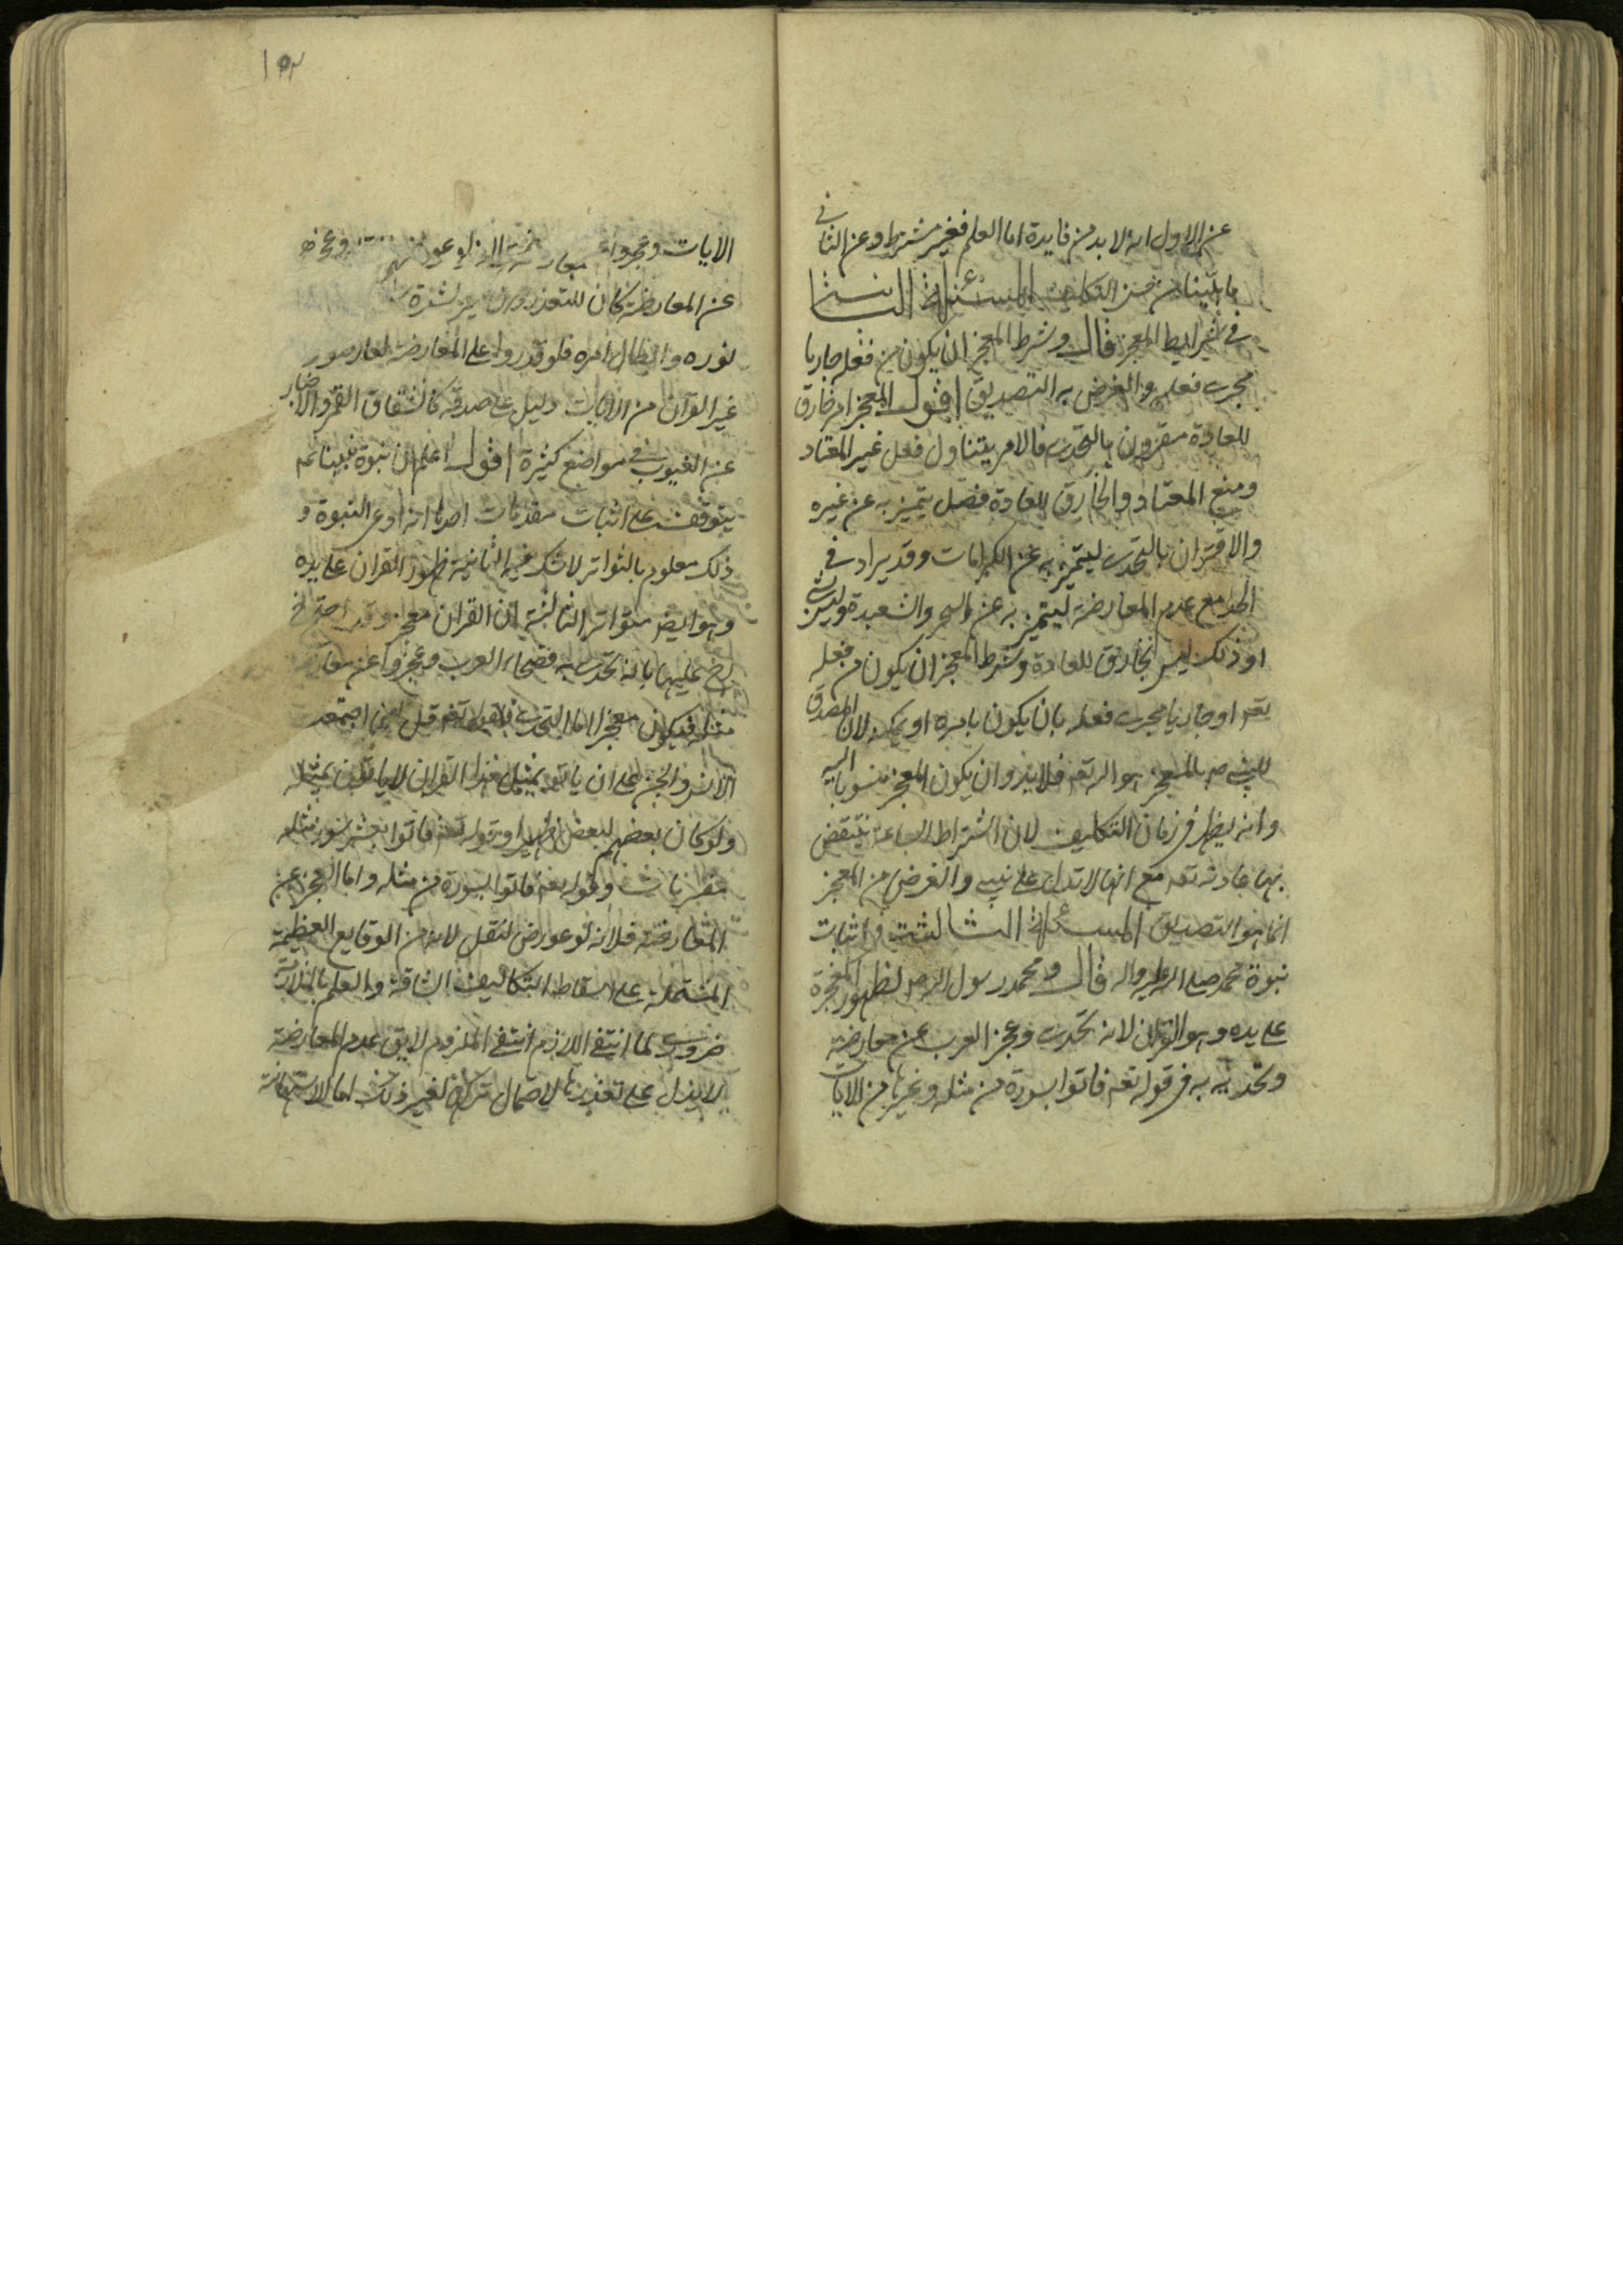 عن الاول انه لا بد من فايدة اما العلم فغير مشترط وعن الثانى
ما بينا من حسن التكليف المسئلة الثانية
فى شرايط المعجز قال وشرط المعجز ان يكون من فعله او جاريا
مجرى فعله والغرض به التصديق اقول المعجز امر خارق
للعادة مقرون بالتحدى فالامر يتناول فعل غير المعتاد
ومنع المعتاد والخارق للعادة فصل يتميز به عن غيره
والاقتران بالتحدى ليتميز به عن الكرامات وقد يراد فى
الحد مع عدم المعارضة ليتميز به عن السحر والشعبدة وليس بشئ
اذ ذلك ليس بخارق للعادة وشرط المعجز ان يكون من فعله
تعه او جاريا مجرى فعله بان يكون بامره او تمكينه لان المصدق
للنبى ص بالمعجز هو الله تعه فلا بد وان يكون المعجز منسوبا اليه
وانه يظهر فى زمان التكليف لان اشتراط الساعة ينتقض
بها عادته تعه مع انها لا تدل على نبى والغرض من المعجز
انما هو التصديق المسئلة الثالثة فى اثبات
نبوة محمد صلى الله عليه واله قال ومحمد رسول الله ص لظهور المعجزة
على يده وهو القران لانه تحدى وعجز العرب عن معارضته
وتحديه به فى قوله تعه فاتوا بسورة من مثله وغيرها من الايات
١٥٢
الايات وعجزوا عن معارضته لو عورض وعجزهم
عن المعارضة كان للتعذر
نوره وابطال امره فلو قدروا على المعارضة لعارضوه
غير القرآن من الايات دليل على صدقه كانشقاق القمر والاخبار
عن الغيوب فى مواضع كثيرة اقول اعلم ان نبوة نبينا عم
يتوقف على اثبات مقدمات احدها انه ادعى النبوة و
ذلك معلوم بالتواتر لا شك فيه الثانية ظهور القران على يده
وهو ايض متواتر الثالثة ان القران معجز وقد احتج
عليها بانه تحدى به فصحاء العرب وعجزوا عن معارضته
مثله فيكون معجزا اما التحدى فلقوله تعه قل لئن اجتمعت
الانس والجن على ان ياتوا بمثل هذا القران لا ياتون بمثله
ولو كان بعضهم لبعض ظهيرا وقوله تعه فاتوا بعشر سور مثله
مفتريات وقوله تعه فاتوا بسورة من مثله واما العجز عن
المعارضة فلانه لو عورض لنقل لانه من الوقايع العظيمة
المشتملة على اسقاط التكاليف الشاقة والعلم بالملازمة
ضرورى لما انتفى اللازم انتفى الملزوم لا يق عدم المعارضة
لا يدل على تعذرها لاحتمال تركها لغير ذلك اما الاستهانة